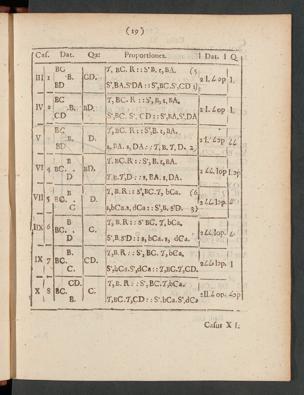 (19)
Caf. Dat. Qu: Proportiones. Dat. Q.
BC T, BC. R :: S'B. 1, BA. (5
III 1 B. CD. 2 I. 4op I.
BD S',BA.S'DA :: S',BC.S',CD 1)
BC T, BC. R :: S', B, 1, BA,
IV 2 B. BD. 2 I. 4op I.
CD S',BC. S', CD :: S',BA,S',DA
BC T, BC. R :: S',B. 1, BA,
V B. D.
BD 1, BA. 1, DA :: T, B. T, D. 2)
B T, BC.R :: S', B. 1, BA.
VI 4 BC. BD.
D T,B.T,D :: 1, BA. 1, DA.
B T, B.R :: S',BC.T, bCa. (6
VII 5 BC. D.
C 1,bCa.1, dCa :: S',B. S'D. 3)
B T, B.R :: S' BC. T, bCa,
IIX 6 BC. C.
D S',B.S'D :: 1, bCa. 1, dCa.
B T, B.R :: S', BC. T, bCa,
IX 7 BC. CD.
C. S',bCa.S',dCa :: T,BC.T,CD.
CD. T, B.R :: S',BC.T,bCa.
X 8 BC. C.
B. T,BC.T,CD :: S'.bCa.S',dCa
Cafus X I.